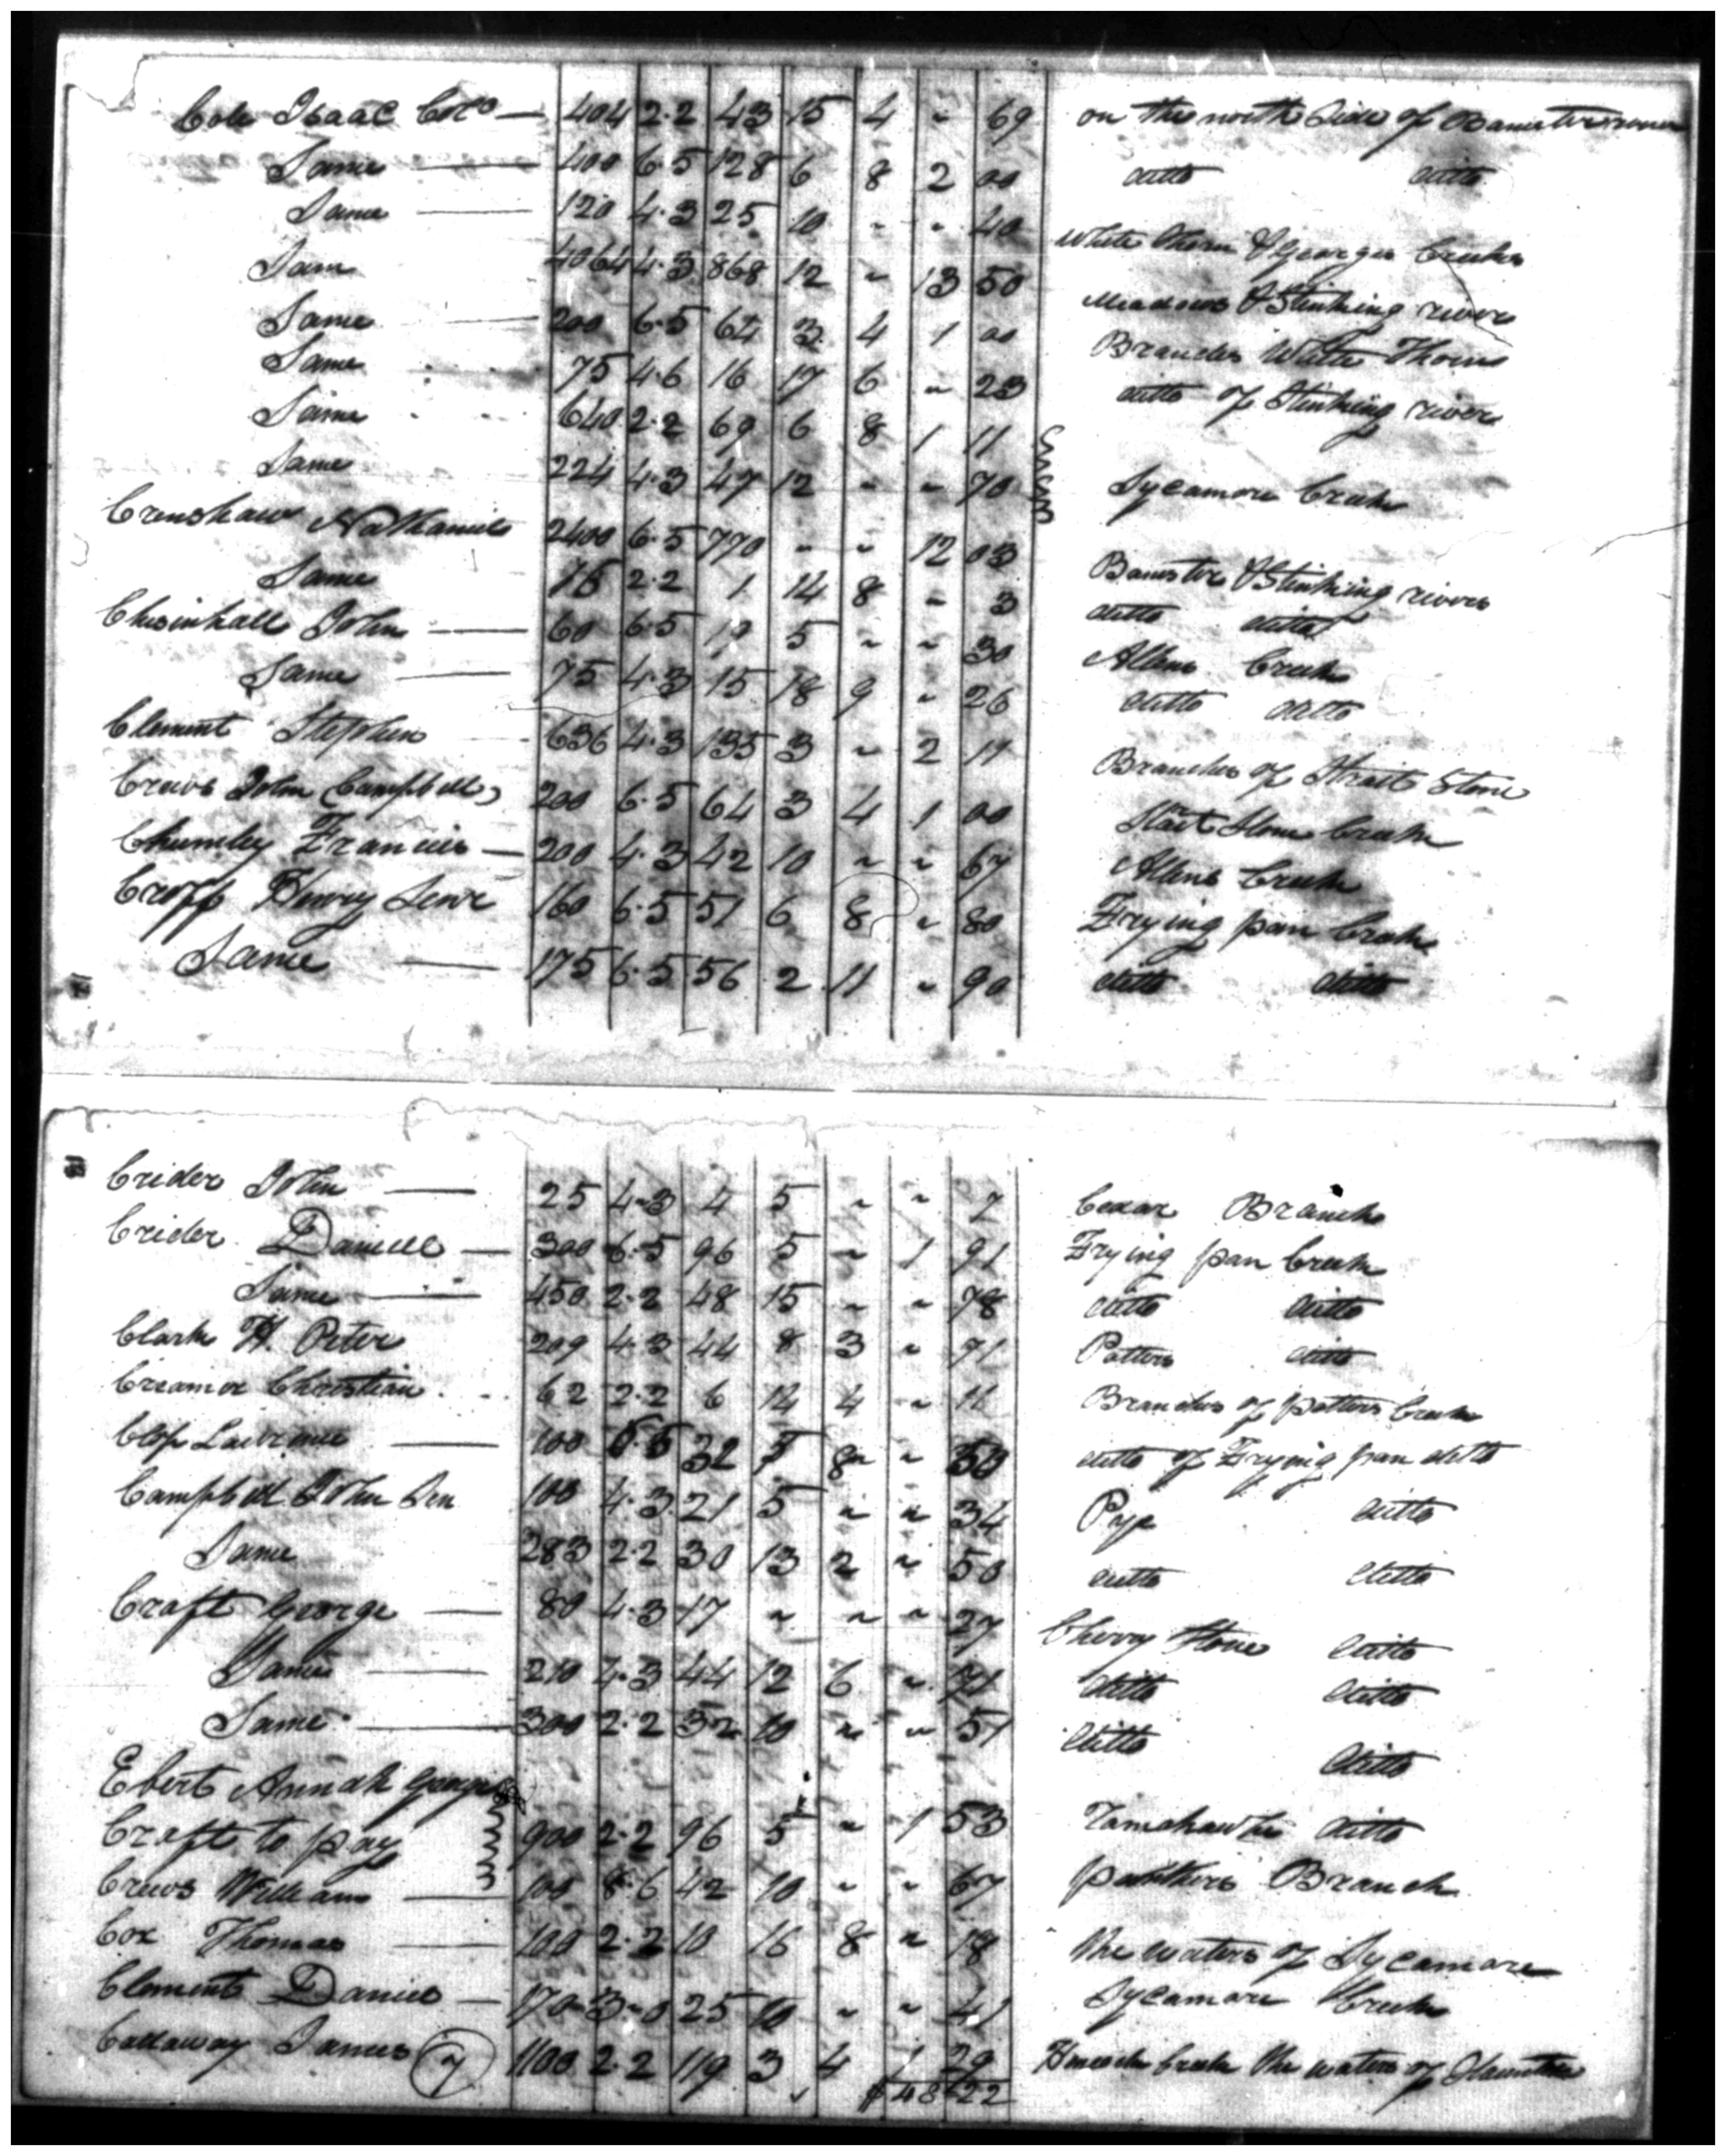 Cole Isaac Colo — 404 2.2 43 15 4 " 69 on the north Side of Banister river
Same — 400 6.5 128 6 8 2 00 ditto ditto
Same — 120 4.3 25 10 " " 40 White thorn & Georges Creeks
Sam 4064 4.3 868 12 " 13 50 Meadows & Stinking rivers
Same — 200 6.5 64 3 4 1 00 Branches White Thorn
Same 75 4.6 16 17 6 " 23 ditto of Stinking river
Same 640 2.2 69 6 8 1 11
Same 224 4.3 47 12 " " 70 Sycamore Creek
Crenshaw Nathaniel 2400 6.5 770 " " 12 03 Banister & Stinking rivers
Same 16 2.2 1 14 8 " 3 ditto ditto
Chisinhall John — 60 6.5 19 5 " " 30 Allens Creek
Same — 75 4.3 15 18 9 " 26 ditto ditto
Clement Stephen 636 4.3 135 3 " 2 11 Branches of Strait Stone
Crews John (Campbell) 200 6.5 64 3 4 1 00 Stait Stone Creek
Chumley Francis — 200 4.3 42 10 " " 67 Allens Creek
Cropp Henry 160 6.5 51 6 8 " 80 Frying pan Creek
Same — 175 6.5 56 2 11 " 90 ditto ditto
Crider John — 25 4.3 4 5 " " 7 Cedar Branch
Crider Daniel — 300 6.5 96 5 " 1 91 Frying pan Creek
Same — 450 2.2 48 15 " " 78 ditto ditto
Clark H. Peter 209 4.3 44 8 3 " 71 Potters ditto
Creamor Christian 62 2.2 6 14 4 " 11 Branches of potters Creek
Clop 100 6.5 32 8 " 50 ditto of Frying pan ditto
Campbell John Sen 100 4.3 21 5 " " 34 Piga ditto
Same 283 2.2 30 13 2 " 50 ditto ditto
Craft George — 80 4.3 17 " " " 27 Cherry Stone ditto
Same — 210 4.3 44 12 6 " 71 ditto ditto
Same — 300 2.2 32 10 " " 51 ditto ditto
Ebert Annah George
Craft to pay 900 2.2 96 5 " 1 53 Tomahawk ditto
Crews William — 100 8.6 42 10 " " 67 panthers Branch
Cox Thomas — 100 2.2 10 16 8 " 18 the waters of Sycamore
Clement Daniel — 170 3.0 25 10 " " 41 Sycamore Creek
Callaway James (7) 1100 2.2 119 3 4 1 29 Creek the waters of Staunton
$48 22